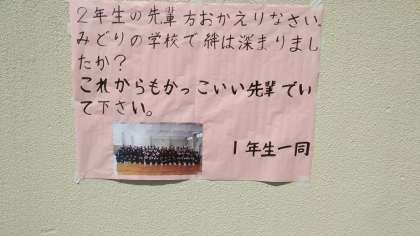 2年生の先輩方おかえりなさい。
みどりの学校で絆は深まりまし
たか?
これからもかっこいい先輩でい
て下さい。
1年生一同